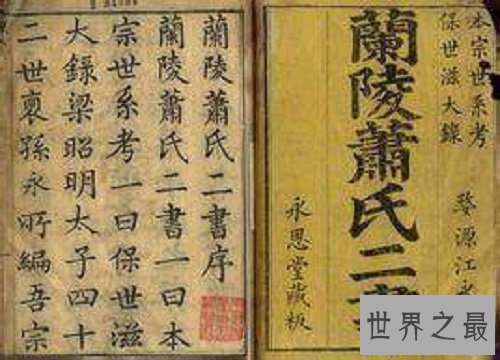 本宗世系考
保世滋大錄
婺源江
蘭陵蕭氏二書
永思堂藏板
蘭陵蕭氏二書序
蘭陵蕭氏二書一曰本
宗世系考一曰保世滋
大錄梁昭明太子四十
二世裔孫永所編吾宗
世界之最